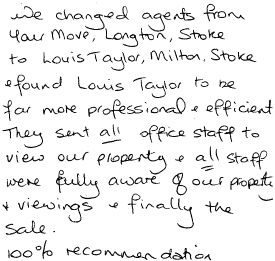 We changed agents from
Your Move, Longton, Stoke
to Louis Taylor, Milton, Stoke
& found Louis Taylor to be
far more professional & efficient
They sent all office staff to
view our property & all staff
were fully aware of our property
& viewings & finally the
sale.
100% recommendation